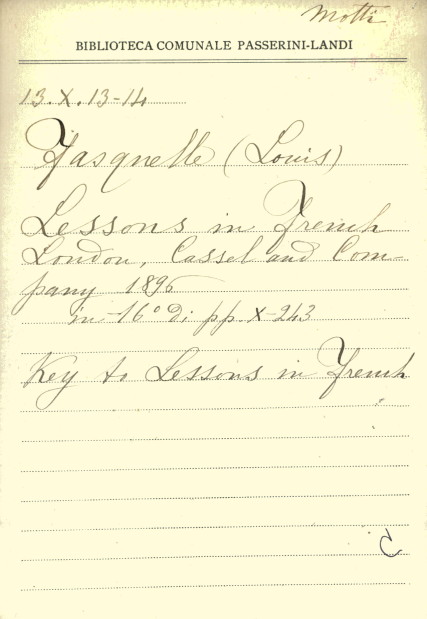 Motti
BIBLIOTECA COMUNALE PASSERINI-LANDI
13.X.13-14
Fasquelle (Louis)
Lessons in French
London, Cassel and Com-
pany 1896
in-16° di pp. X-243
Key to Lessons in French
C